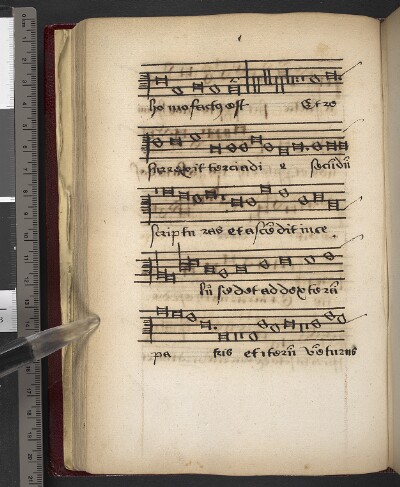 homo factus est Et re
surrexit tercia di e secūdū
scriptu ras et ascēdit in ce
lū sedet ad dexterā
pa tris et iterū vēturus